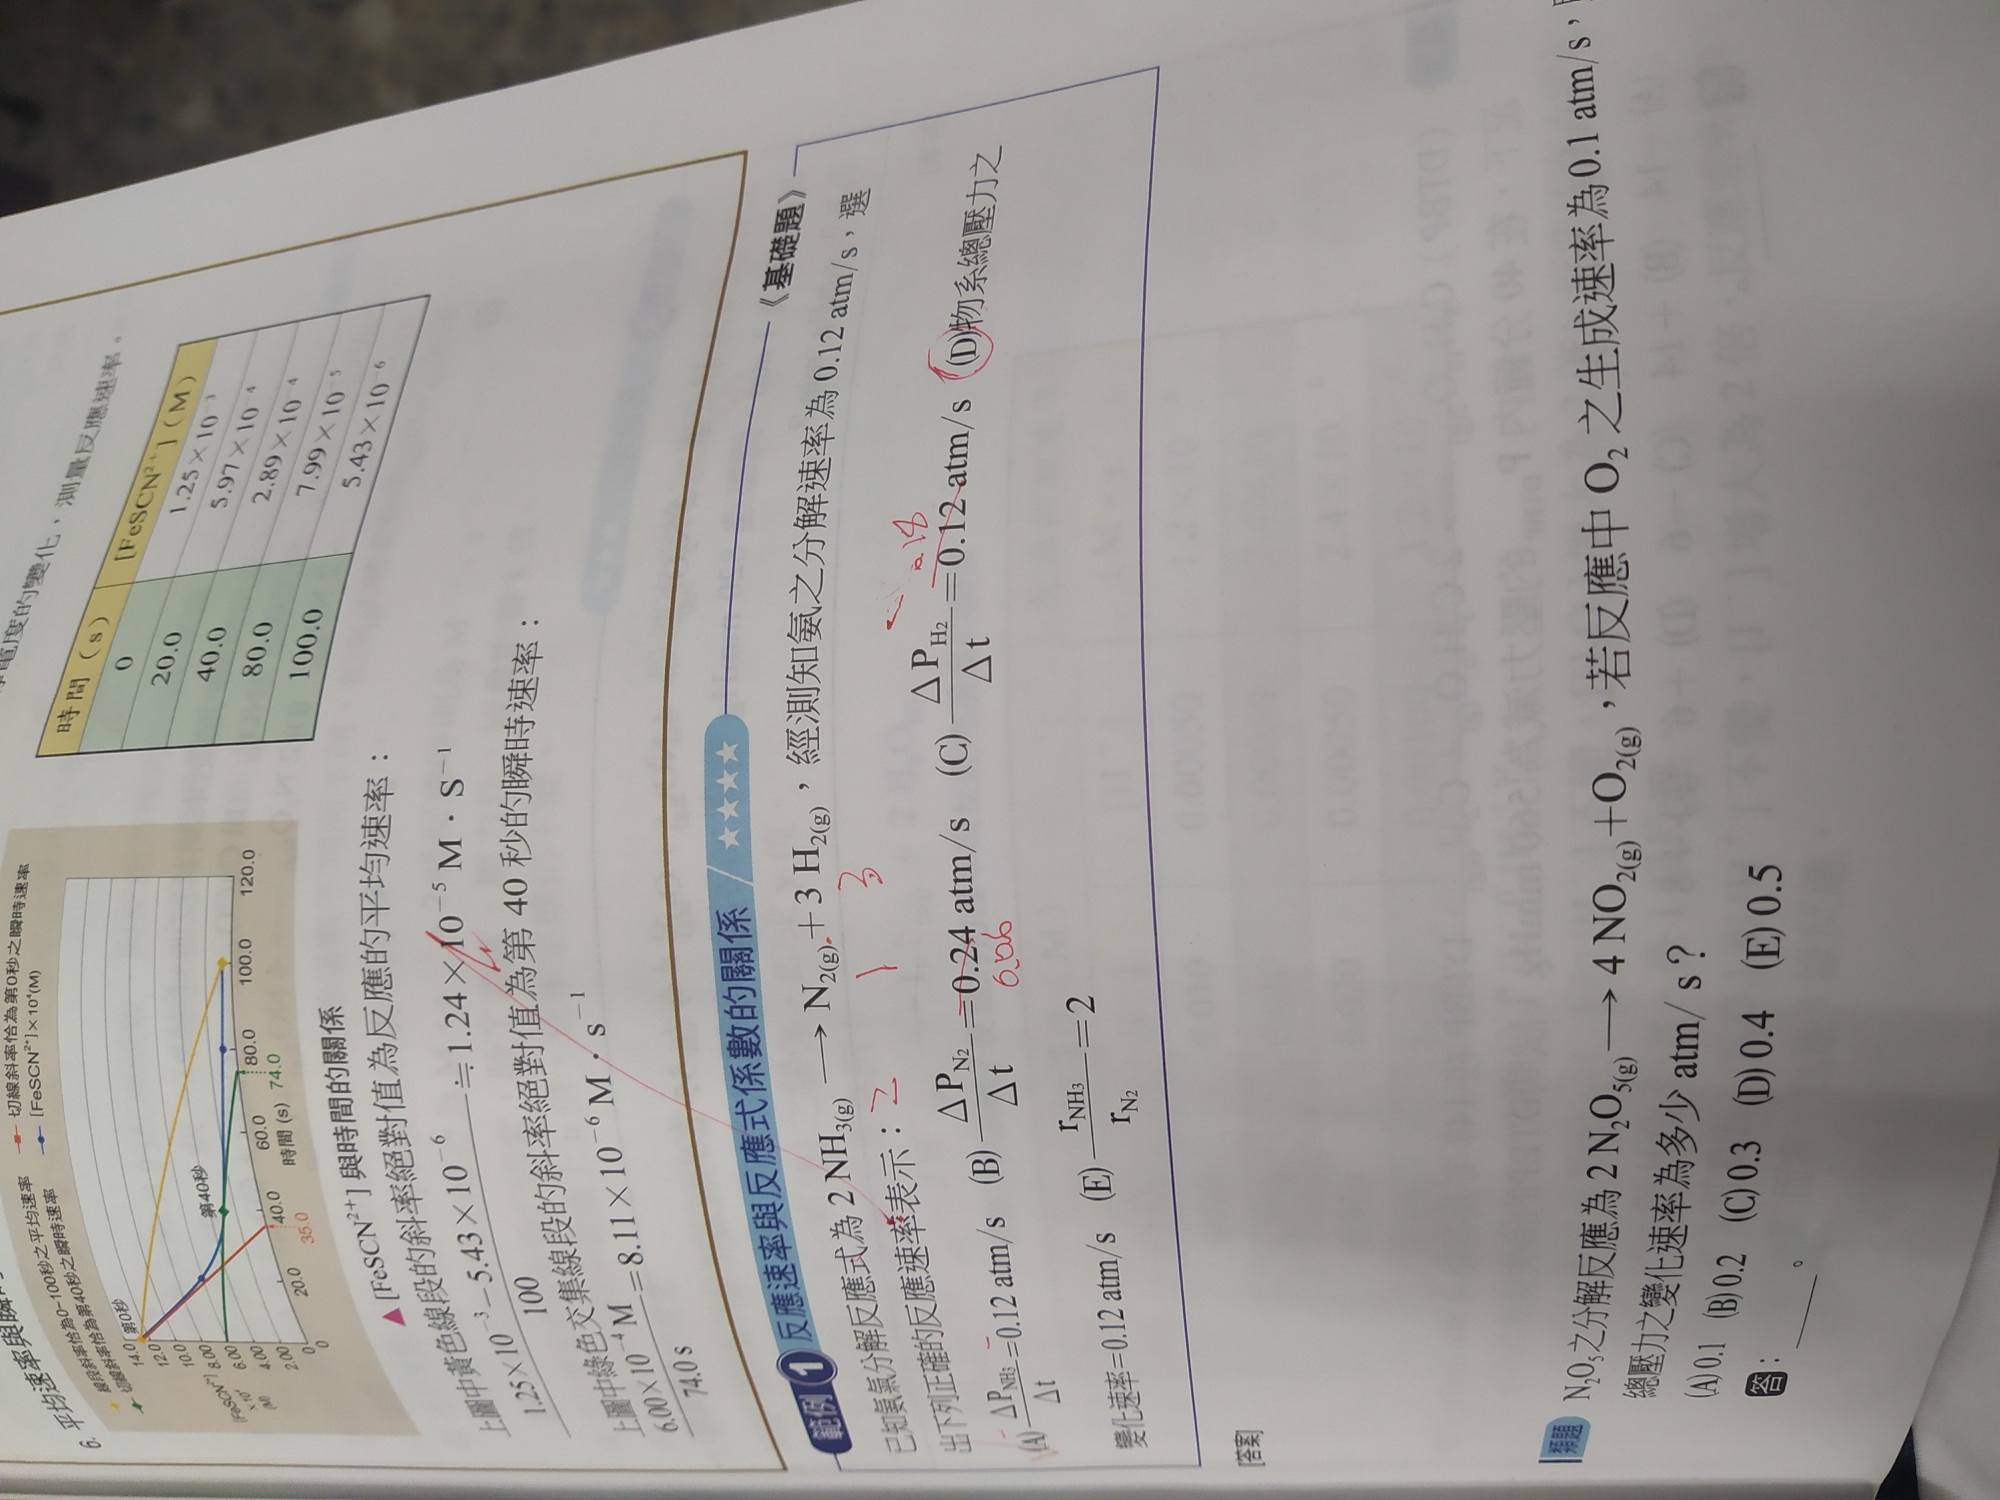 電度的變化，測量反應速率。
6. 平均速率與瞬
線段斜率恰為0-100秒之平均速率
切線斜率恰為第0秒之瞬時速率
切線斜率恰為第40秒之瞬時速率
[FeSCN²⁺]×10⁴(M)
第0秒
第40秒
14.0
12.0
10.0
8.00
6.00
4.00
2.00
0
0
20.0
40.0
60.0
80.0
100.0
120.0
35.0
74.0
時間 (s)
▲[FeSCN²⁺] 與時間的關係
時間（s） [FeSCN²⁺]（M）
0 1.25×10⁻³
20.0 5.97×10⁻⁴
40.0 2.89×10⁻⁴
80.0 7.99×10⁻⁵
100.0 5.43×10⁻⁶
上圖中黃色線段的斜率絕對值為反應的平均速率：
(1.25×10⁻³−5.43×10⁻⁶)/100≒1.24×10⁻⁵ M・S⁻¹
上圖中綠色交集線段的斜率絕對值為第 40 秒的瞬時速率：
(6.00×10⁻⁴M)/(74.0 s)=8.11×10⁻⁶ M・s⁻¹
範例 1 反應速率與反應式係數的關係 / ★★★★
《基礎題》
已知氨氣分解反應式為 2 NH₃(g) ⟶ N₂(g)+3 H₂(g)，經測知氨之分解速率為 0.12 atm/s，選
出下列正確的反應速率表示：
2 1 3
(A) −ΔP_NH₃/Δt=0.12 atm/s (B) ΔP_N₂/Δt=0.24 atm/s (C) ΔP_H₂/Δt=0.12 atm/s (D)物系總壓力之
0.06
0.18
變化速率=0.12 atm/s (E) r_NH₃/r_N₂=2
[答案]
類題 N₂O₅之分解反應為 2 N₂O₅(g) ⟶ 4 NO₂(g)+O₂(g)，若反應中 O₂ 之生成速率為0.1 atm/s，
總壓力之變化速率為多少 atm/ s？
(A)0.1 (B)0.2 (C)0.3 (D)0.4 (E)0.5
答：____。